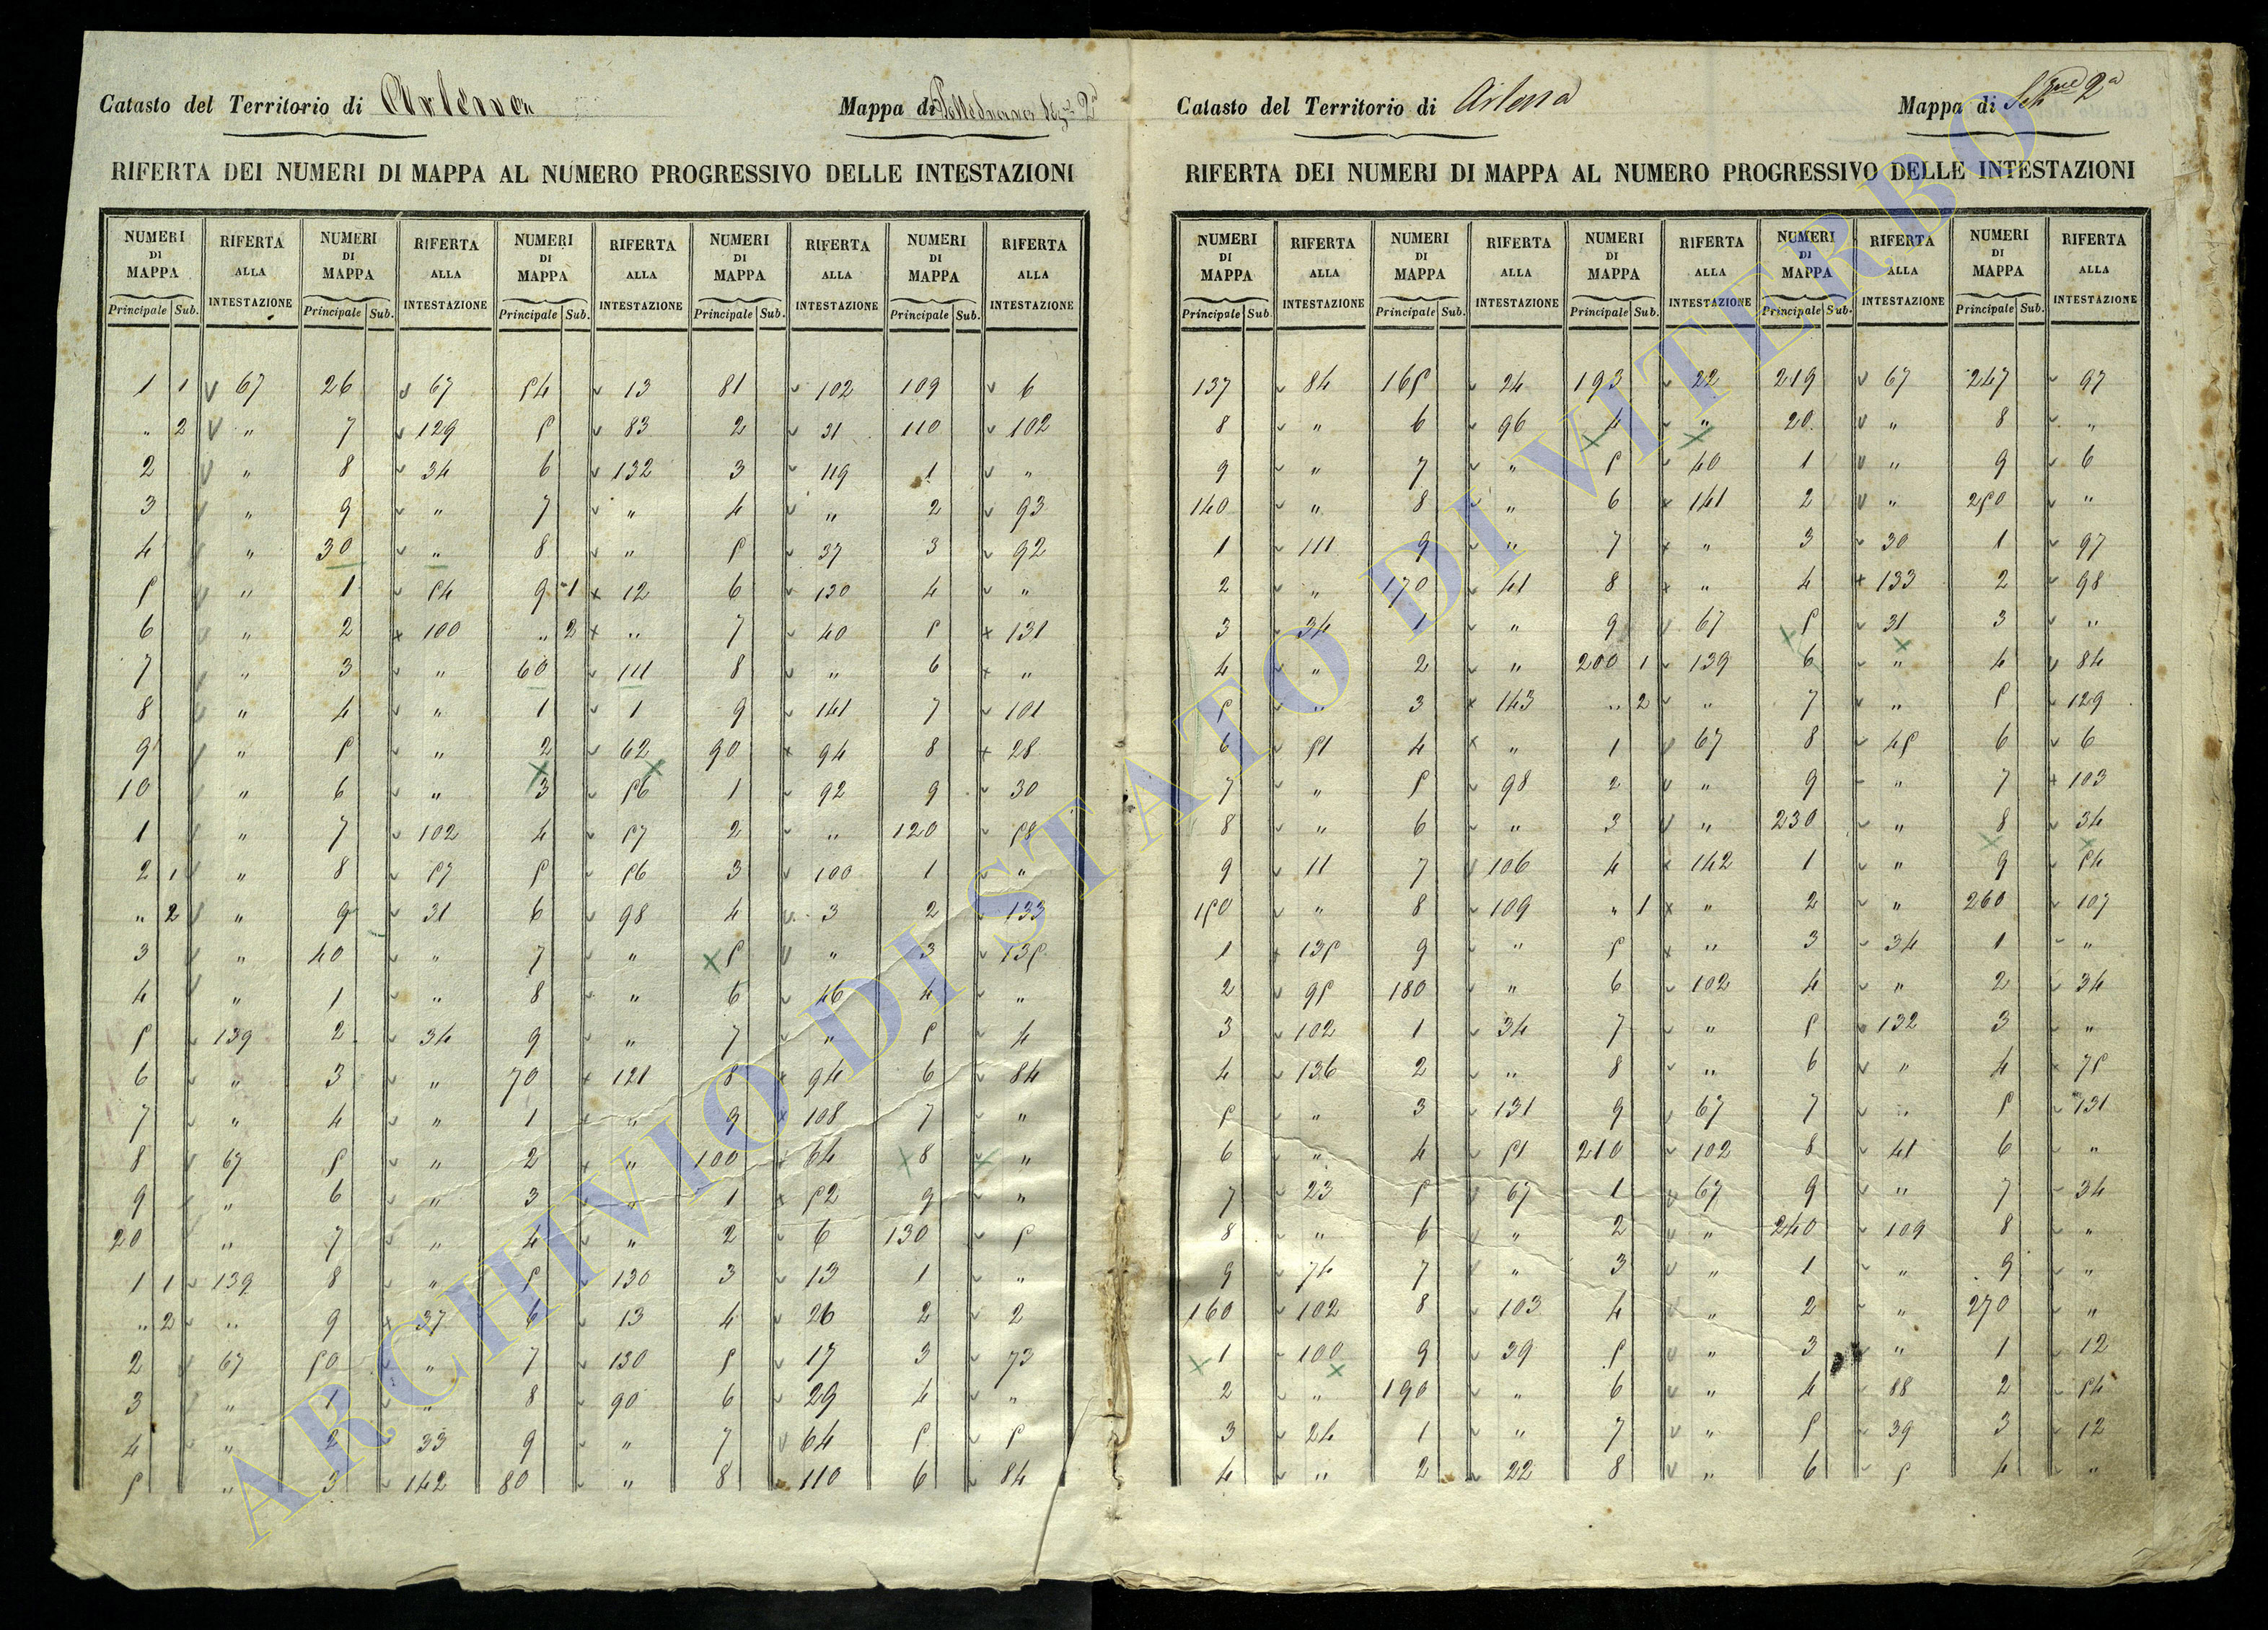 Catasto del Territorio di Arlena Mappa di Pelledrana Sez.ne 2a
RIFERTA DEI NUMERI DI MAPPA AL NUMERO PROGRESSIVO DELLE INTESTAZIONI
NUMERI DI MAPPA RIFERTA ALLA INTESTAZIONE NUMERI DI MAPPA RIFERTA ALLA INTESTAZIONE NUMERI DI MAPPA RIFERTA ALLA INTESTAZIONE NUMERI DI MAPPA RIFERTA ALLA INTESTAZIONE NUMERI DI MAPPA RIFERTA ALLA INTESTAZIONE
Principale Sub. Principale Sub. Principale Sub. Principale Sub. Principale Sub.
1 1 67 26 67 54 13 81 102 109 6
" 2 " 7 129 5 83 2 31 110 102
2 " 8 34 6 132 3 119 1 "
3 " 9 " 7 " 4 " 2 93
4 " 30 " 8 " 5 37 3 92
5 " 1 54 9 1 12 6 130 4 "
6 " 2 100 " 2 " 7 40 5 131
7 " 3 " 60 111 8 " 6 "
8 " 4 " 1 1 9 141 7 101
9 " 5 " 2 62 90 94 8 28
10 " 6 " 3 56 1 92 9 30
1 " 7 102 4 57 2 " 120 58
2 1 " 8 57 5 56 3 100 1 "
" 2 " 9 31 6 98 4 3 2 133
3 " 40 " 7 " 5 " 3 135
4 " 1 " 8 " 6 46 4 "
5 139 2 34 9 " 7 " 5 4
6 " 3 " 70 121 8 94 6 84
7 " 4 " 1 " 9 108 7 "
8 67 5 " 2 " 100 64 8 "
9 " 6 " 3 " 1 52 9 "
20 " 7 " 4 " 2 6 130 5
1 1 139 8 " 5 130 3 13 1 "
" 2 " 9 37 6 13 4 26 2 2
2 67 50 " 7 130 5 17 3 73
3 " 1 " 8 90 6 29 4 "
4 " 2 33 9 " 7 64 5 5
5 " 3 142 80 " 8 110 6 84
Catasto del Territorio di Arlena Mappa di Sez.ne 2a
RIFERTA DEI NUMERI DI MAPPA AL NUMERO PROGRESSIVO DELLE INTESTAZIONI
NUMERI DI MAPPA RIFERTA ALLA INTESTAZIONE NUMERI DI MAPPA RIFERTA ALLA INTESTAZIONE NUMERI DI MAPPA RIFERTA ALLA INTESTAZIONE NUMERI DI MAPPA RIFERTA ALLA INTESTAZIONE NUMERI DI MAPPA RIFERTA ALLA INTESTAZIONE
Principale Sub. Principale Sub. Principale Sub. Principale Sub. Principale Sub.
137 84 165 24 193 22 219 67 247 97
8 " 6 96 4 " 20 " 8 "
9 " 7 " 5 40 1 " 9 6
140 " 8 " 6 141 2 " 250 "
1 111 9 " 7 " 3 30 1 97
2 " 170 41 8 " 4 133 2 98
3 34 1 " 9 67 5 31 3 "
4 " 2 " 200 1 139 6 " 4 84
5 " 3 143 " 2 " 7 " 5 129
6 51 4 " 1 67 8 45 6 6
7 " 5 98 2 " 9 " 7 103
8 " 6 " 3 " 230 " 8 34
9 11 7 106 4 142 1 " 9 54
150 " 8 109 " 1 " 2 " 260 107
1 135 9 " 5 " 3 34 1 "
2 95 180 " 6 102 4 " 2 34
3 102 1 34 7 " 5 132 3 "
4 136 2 " 8 " 6 " 4 75
5 " 3 131 9 67 7 " 5 131
6 " 4 51 210 102 8 41 6 "
7 23 5 67 1 67 9 " 7 34
8 " 6 " 2 " 240 109 8 "
9 74 7 " 3 " 1 " 9 "
160 102 8 103 4 " 2 " 270 "
1 100 9 39 5 " 3 " 1 12
2 " 190 " 6 " 4 88 2 54
3 24 1 " 7 " 5 39 3 12
4 " 2 22 8 " 6 5 4 "
ARCHIVIO DI STATO DI VITERBO